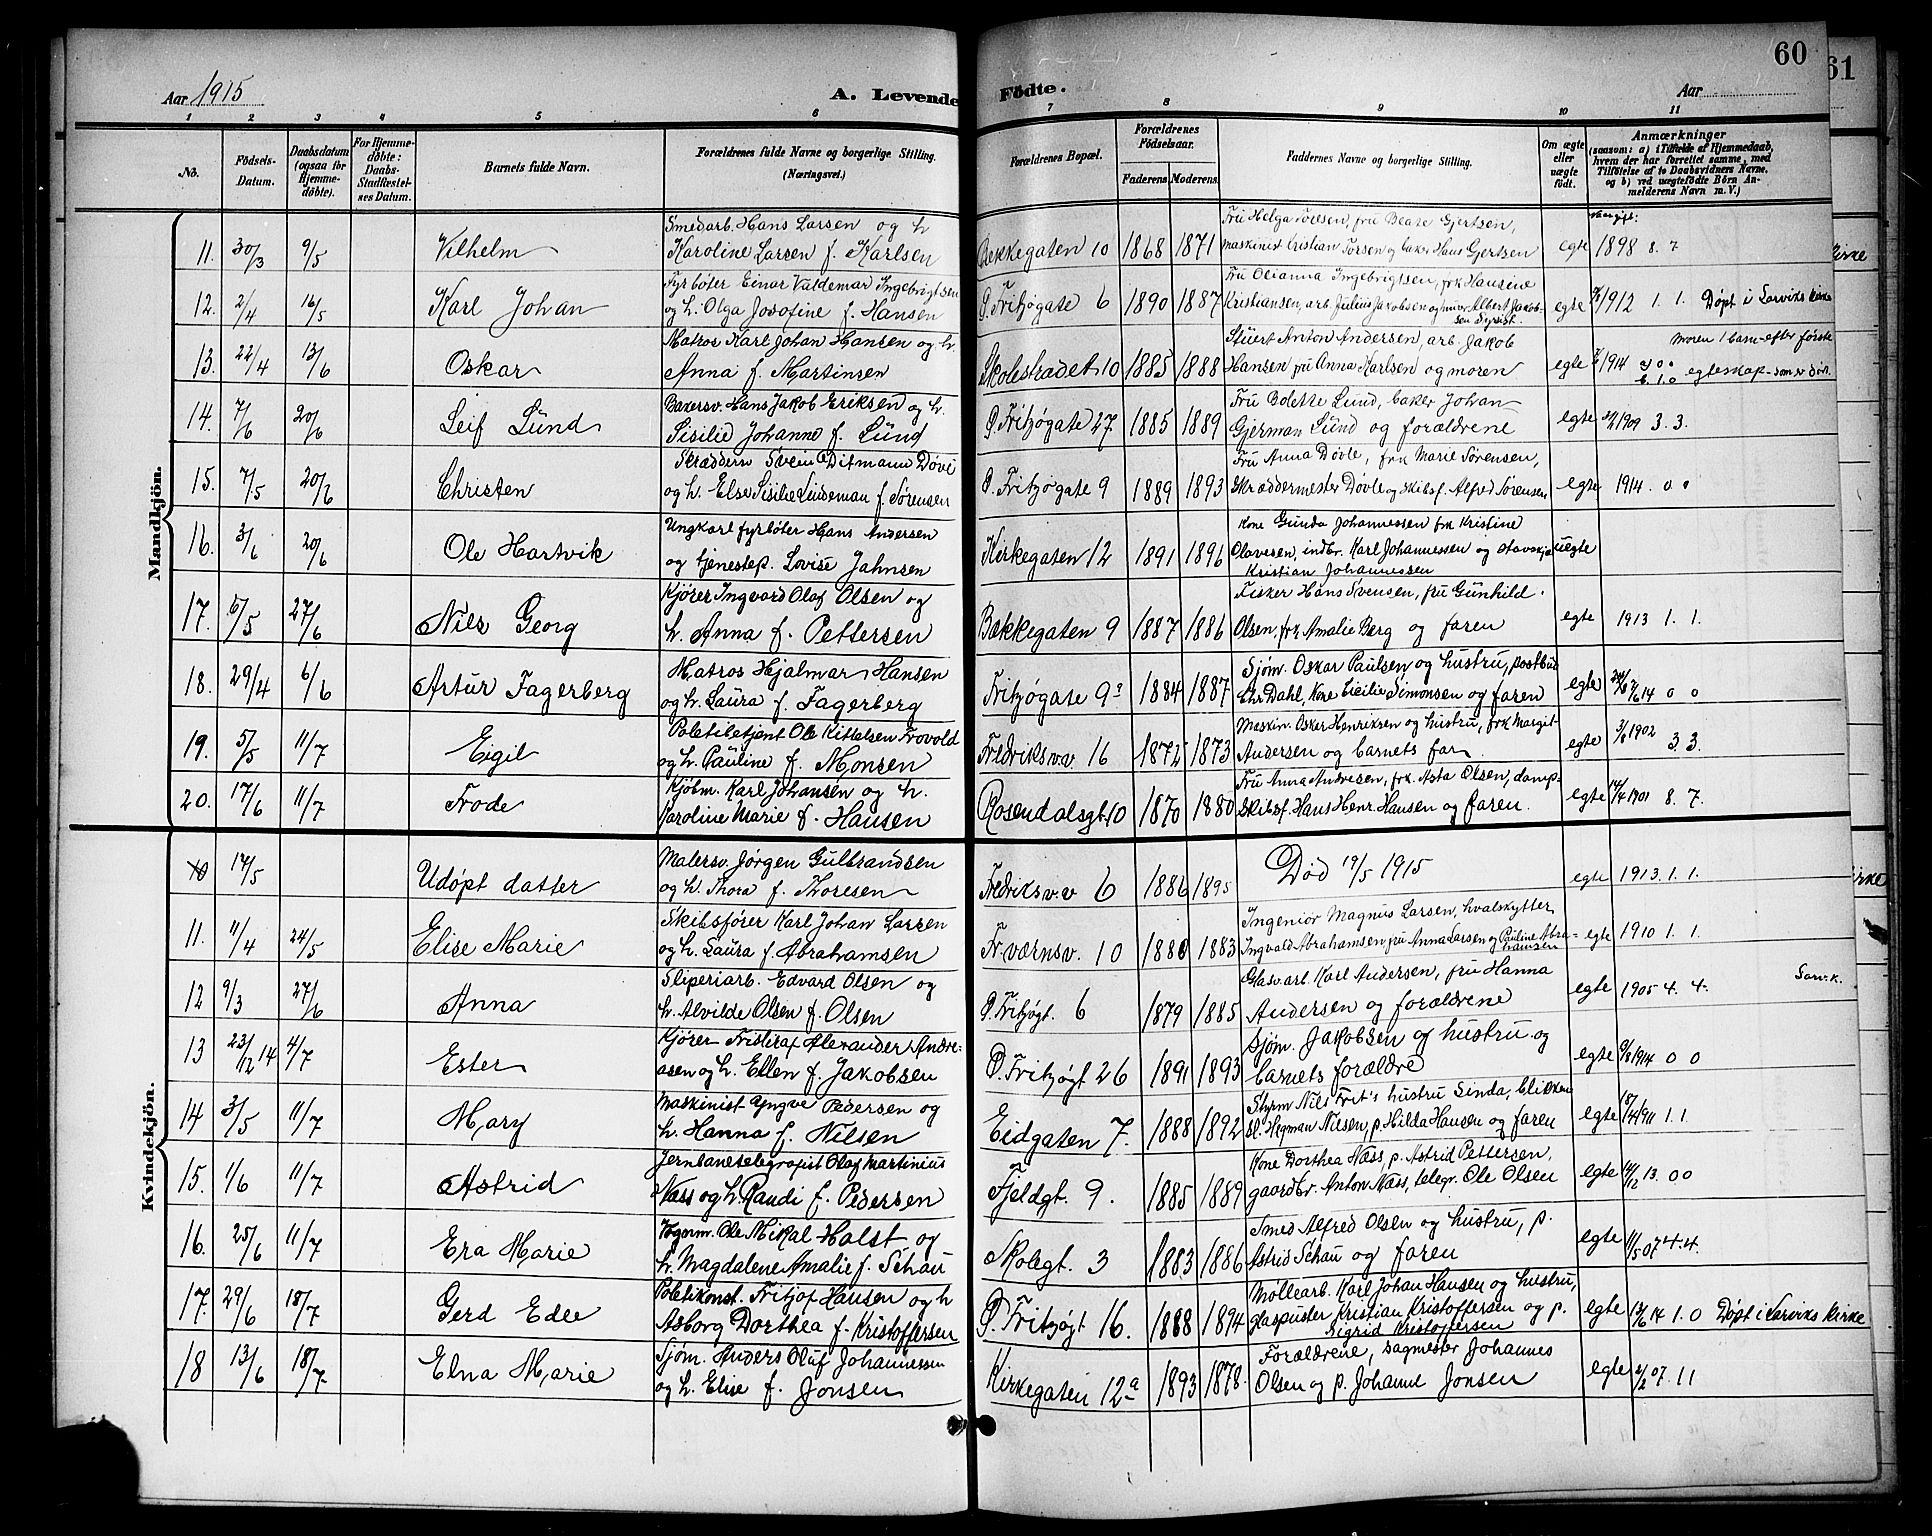 60
61
Aar 1915
A. Levende Födte.
Aar
1 2 3 4 5 6 7 8 9 10 11
No.
Födsels-Datum.
Daabsdatum (ogsaa for Hjemme-döbte).
For Hjemme-döbte: Daabs-Stadfæstel-ses Datum.
Barnets fulde Navn.
Forældrenes fulde Navne og borgerlige Stilling. (Næringsvei.)
Forældrenes Bopæl.
Forældrenes Födselsaar.
Faderens.
Moderens.
Faddernes Navne og borgerlige Stilling.
Om ægte eller uægte födt.
Anmærkninger
(saasom: a) i Tilfælde af Hjemmedaab,
hvem der har forrettet samme, med
Tilföielse af to Daabsvidners Navne,
og b) ved uægtefödte Börn An-
melderens Navn m. V.)
Mandkjön.
Smedarb. Hans Larsen og h. Fru Helga Torsen, fru Beate Gjertsen,
11. 30/3 9/5 Vilhelm Karoline Larsen f. Karlsen Bekkegaten 10 1868 1871 maskinist Kristian Torsen og baker Hans Gjertsen egte 1898 8. 7
Fyrböter Einar Valdemar Ingebrigtsen Fru Olianna Ingebrigtsen, frk Hansine
12. 2/4 16/5 Karl Johan og h. Olga Josefine f. Hansen Ø. Fritzøgate 6 1890 1887 Kristiansen, arb. Julius Jakobsen og murer Albert Jakob- egte 1912 1. 1. Døpt i Larviks Kirke
Matros Karl Johan Hansen og h. Stuert Anton Andersen, arb. Jakob moren 1 barn efter første
13. 22/4 13/6 Oskar Anna f. Martinsen Skolestrædet 10 1885 1888 Hansen fru Anna Karlsen og moren egte 1914 egteskap som er død.
Bakersv. Hans Jakob Eriksen og h. Fru Bolette Lund, baker Johan
14. 7/6 20/6 Leif Lund Sisilie Johanne f. Lund Ø. Fritzøgate 27 1885 1889 Gjerman Lund og forældrene egte 1909 3. 3.
Skræddersv. Svein Ditmann Døvle Fru Anna Døvle, frk Marie Sørensen,
15. 7/5 20/6 Christen og h. Else Sisilie Lindeman f. Sørensen Ø. Fritzøgate 9 1889 1893 skræddermester Døvle og skibsf. Alfred Sørensen egte 1914. 0 0
Ungkarl fyrböter Hans Andersen Kone Gunda Johannessen frk Kristine
16. 3/6 20/6 Ole Hartvik og tjenestep. Lovise Jahnsen Kirkegaten 12 1891 1896 Olavesen, indbr. Karl Johannessen og uegte
Kristian Johannessen
Kjører Ingvard Olaf Olsen og Fisker Hans Svensen, fru Gunhild
17. 6/5 27/6 Nils Georg h. Anna f. Pettersen Bækkegaten 9 1887 1886 Olsen, frk Amalie Berg og faren egte 1913 1. 1.
Matros Hjalmar Hansen Sjøm. Oskar Paulsen og hustru, postbud
18. 29/4 6/6 Artur Fagerberg og h. Laura f. Fagerberg Fritzøgate 9 1884 1887 Chr Dahl, Kone Cicilie Simonsen og faren egte 14 0 0
Politibetjent Ole Kittelsen Frovold Maskin. Oskar Henriksen og hustru, frk Margit
19. 5/5 11/7 Eigil og h. Pauline f. Monsen Fredriksv.v. 16 1872 1873 Andersen og barnets far egte 3/6 1902 3. 3.
Kjøbm. Karl Johansen og h. Fru Anna Andresen, frk. Asta Olsen, damp-
20. 17/6 11/7 Frode Karoline Marie f. Hansen Rosendalsgt. 10 1870 1880 skibsf. Hans Henr. Hansen og faren. egte 14/4 1901 8. 7.
Kvindekjön.
Malersv. Jørgen Gulbrandsen
10 17/5 Udøpt datter og h. Thora f. Thoresen Fredriksv.v 6 1886 1895 Død 19/5 1915 egte 1913. 1. 1.
Skibsfører Karl Johan Larsen Ingeniør Magnus Larsen, hvalskytter
11. 11/4 24/5 Elise Marie og h. Laura f. Abrahamsen Fr.værnsv. 10 1880 1883 Ingvald Abrahamsen fru Anna Larsen og Pauline Abra-hamsen egte 1910 1. 1.
Sliperiarb. Edvard Olsen og Glasvarb. Karl Andersen, fru Hanna
12 9/3 27/6 Anna h. Alvilde Olsen f. Olsen Ø. Fritzøgt. 6 1879 1885 Andersen og forældrene egte 1905 4. 4. Larv.k.
Kjører Fristiraf Alexander Andre- Sjøm. Jakobsen og hustru og
13 23/12 14 4/7 Ester asen og h. Ellen f. Jakobsen Ø. Fritzøgt 26 1891 1893 barnets forældre egte 9/8 1914 0 0
Maskinist Yngve Pedersen og Styrm Nils Frit's hustru Linda, blikken
14 3/5 11/7 Mary h. Hanna f. Nilsen Eidgaten 7. 1888 1892 sl. Hegman Nilsen, p. Hilda Hansen og faren egte 1911 1. 1
Jernbanetelegrafist Olaf Martinius Kone Dorthea Næss, p. Astrid Pettersen,
15. 1/6 11/7 Astrid Næss og h. Randi f. Pedersen Fjeldgt. 9. 1885 1889 gaardbr. Anton Næss, telegr. Ole Olsen egte 13. 0 0
Vognm. Ole Mikal Holst og Smed Alfred Olsen og hustru, p.
16. 25/6 11/7 Era Marie h. Magdalene Amalie f. Schau Skolegt. 3 1883 1886 Astrid Schau og faren egte 11/5 07 4. 4.
Politikonst. Fritjof Hansen og h Møllearb. Karl Johan Hansen og hustru,
17. 29/6 18/7 Gerd Edle Asborg Dorthea f. Kristoffersen Ø. Fritzøgt 16. 1888 1894 glaspuster Kristian Kristoffersen og p. egte 13/6 14 1. 0 Døpt i Larviks Kirke
Sigrid Kristoffersen
Sjøm. Anders Oluf Johannessen Forældrene, sagmester Johannes
18 13/6 18/7 Elna Marie og h. Elise f. Jonsen Kirkegaten 12a 1893 1878. Olsen og p. Johanne Jonsen egte 2/2 07. 11